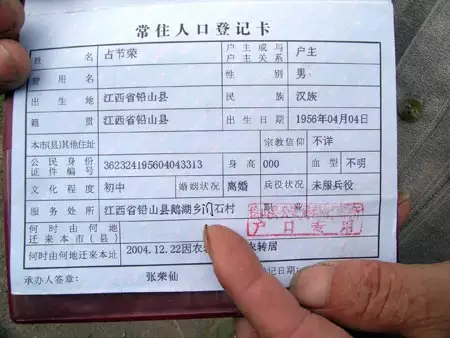 常住人口登记卡
姓名 占节荣 户主或与户主关系 户主
曾用名 性别 男
出生地 江西省铅山县 民族 汉族
籍贯 江西省铅山县 出生日期 1956年04月04日
本市(县)其他住址 宗教信仰 不详
公民身份证件编号 362324195604043313 身高 000 血型 不明
文化程度 初中 婚姻状况 离婚 兵役状况 未服兵役
服务处所 江西省铅山县鹅湖乡门石村 职业
户口专用
何时由何地迁来本市(县)
何时由何地迁来本址 2004.12.22因农 农转居
承办人签章: 张荣仙 记日期: